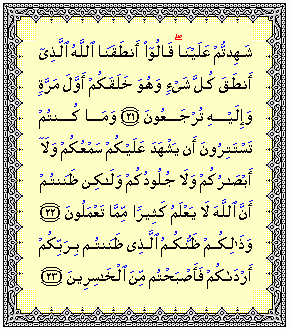 شَهِدتُّمْ عَلَيْنَا ۖ قَالُوٓا۟ أَنطَقَنَا ٱللَّهُ ٱلَّذِىٓ
أَنطَقَ كُلَّ شَىْءٍ وَهُوَ خَلَقَكُمْ أَوَّلَ مَرَّةٍ
وَإِلَيْهِ تُرْجَعُونَ ﴿٢١﴾ وَمَا كُنتُمْ
تَسْتَتِرُونَ أَن يَشْهَدَ عَلَيْكُمْ سَمْعُكُمْ وَلَآ
أَبْصَـٰرُكُمْ وَلَا جُلُودُكُمْ وَلَـٰكِن ظَنَنتُمْ
أَنَّ ٱللَّهَ لَا يَعْلَمُ كَثِيرًا مِّمَّا تَعْمَلُونَ ﴿٢٢﴾
وَذَٰلِكُمْ ظَنُّكُمُ ٱلَّذِى ظَنَنتُم بِرَبِّكُمْ
أَرْدَىٰكُمْ فَأَصْبَحْتُم مِّنَ ٱلْخَـٰسِرِينَ ﴿٢٣﴾